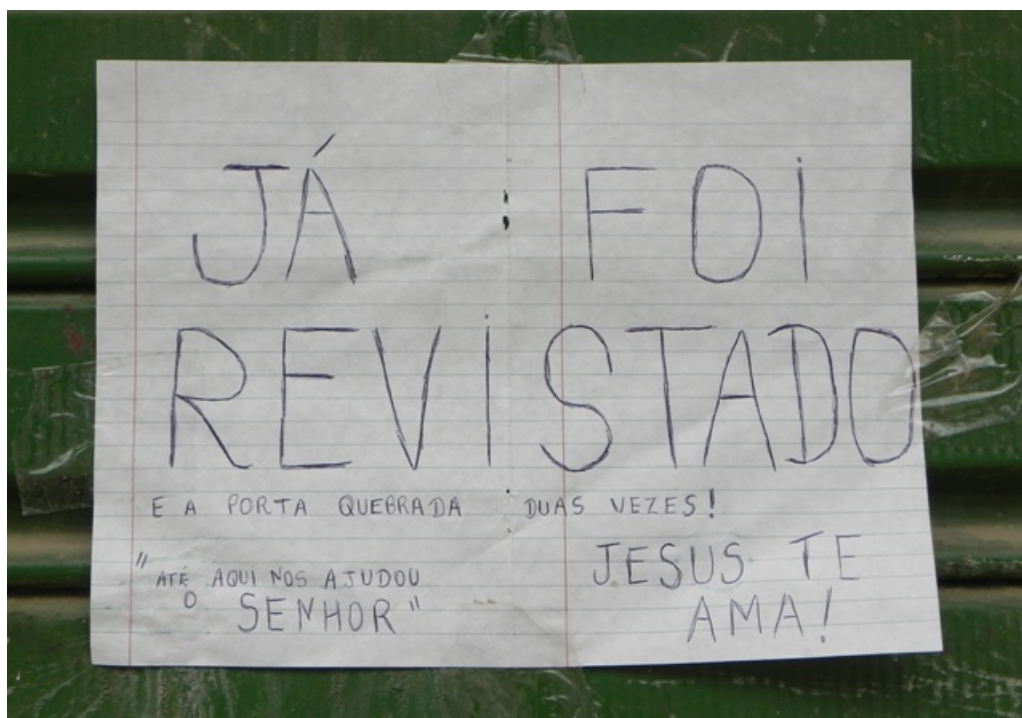 JÁ FOI
REVISTADO
E A PORTA QUEBRADA DUAS VEZES!
"ATÉ AQUI NOS AJUDOU
O SENHOR"
JESUS TE
AMA!